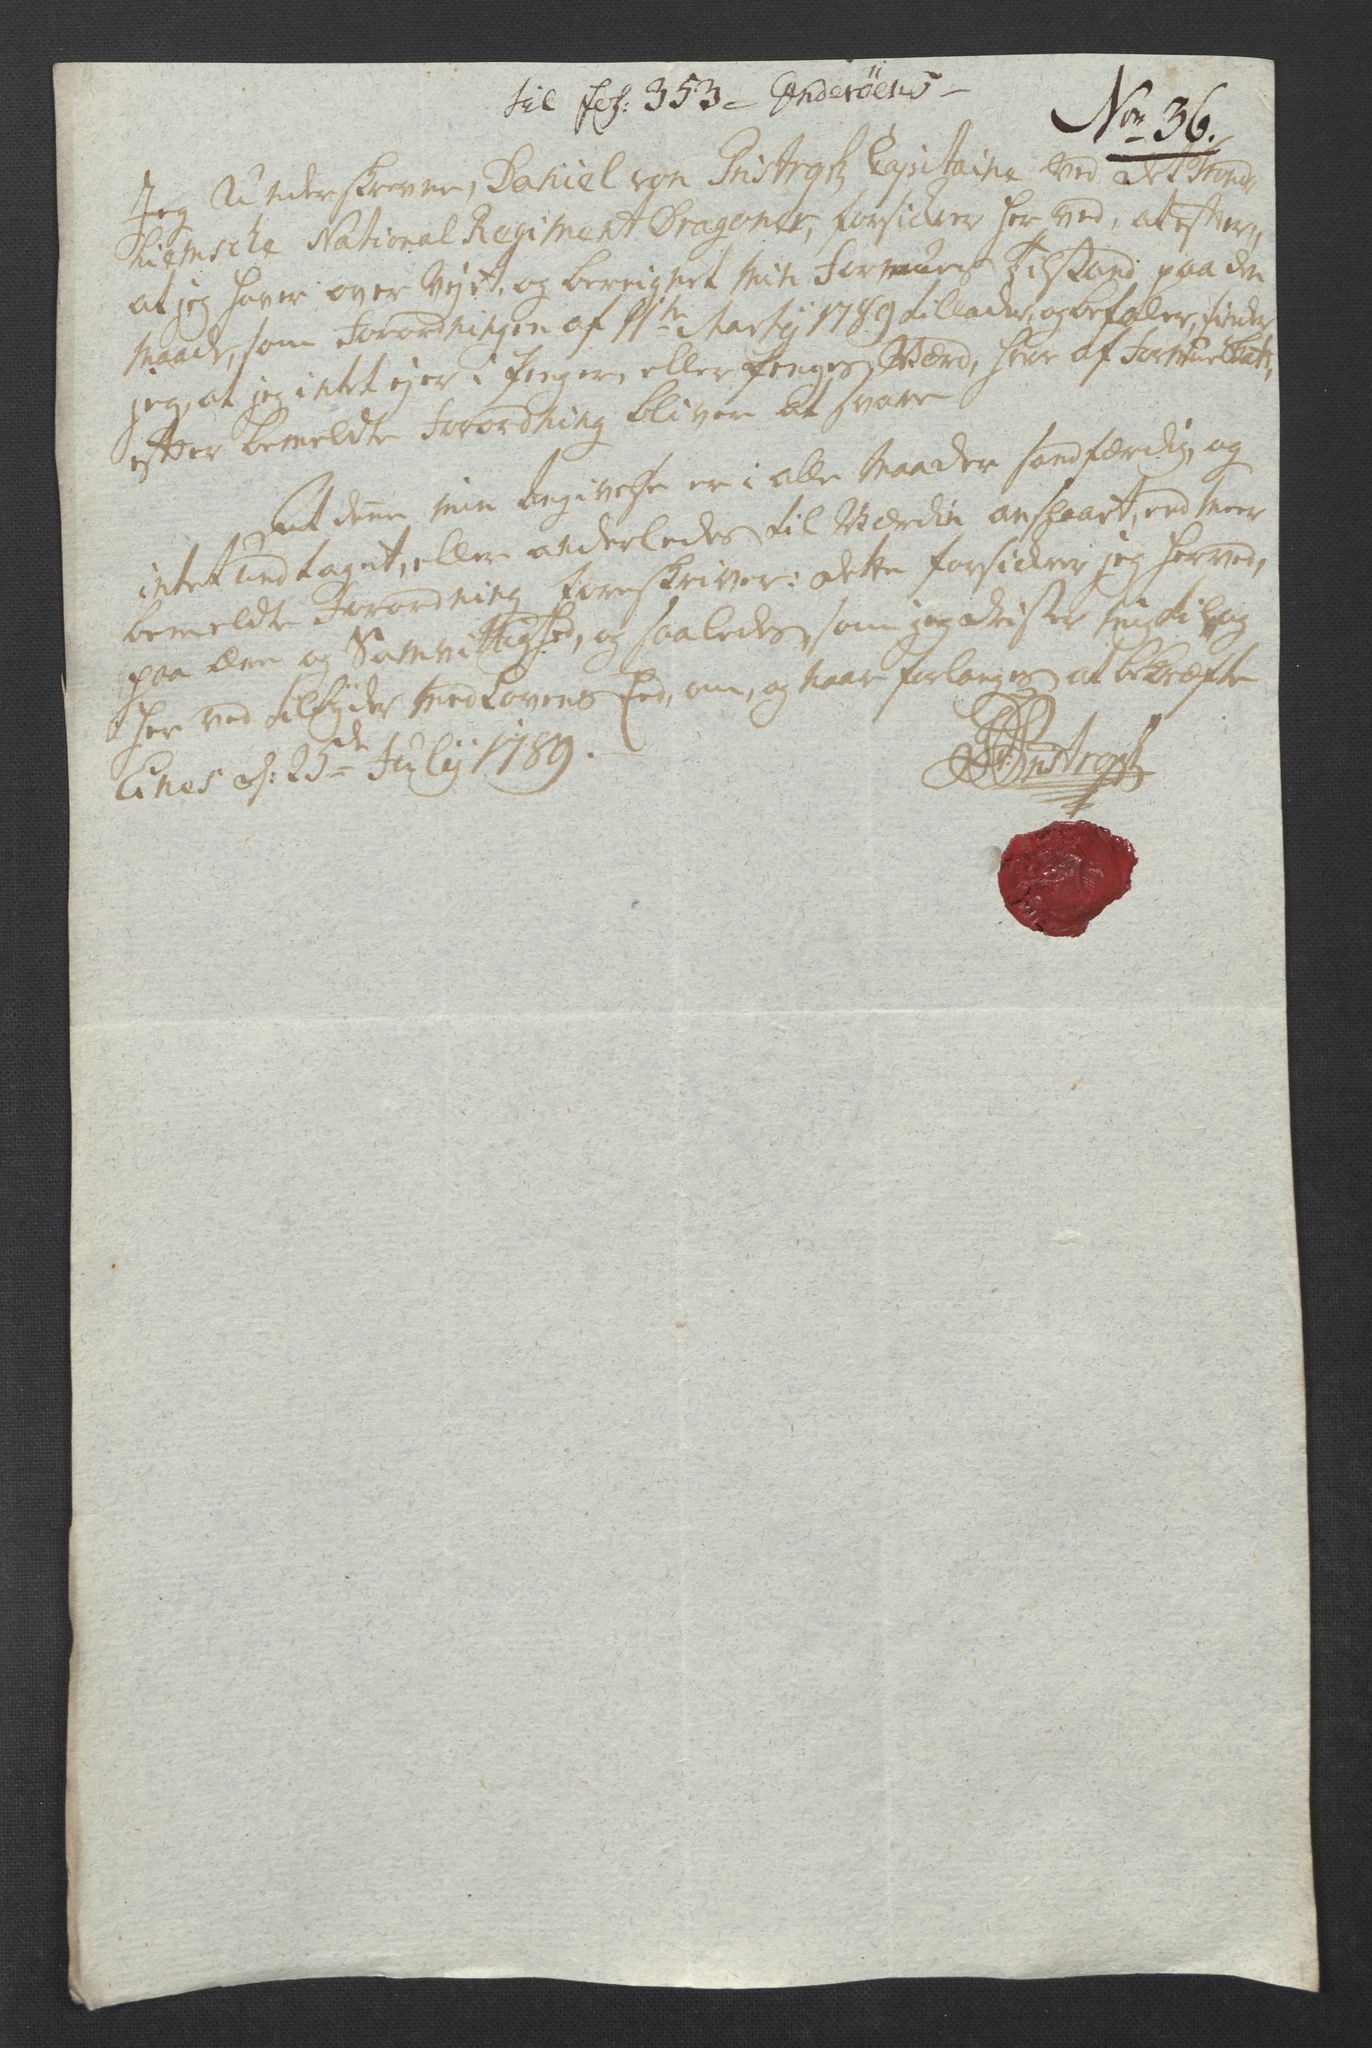 til fol: 353 - Inderöens -
No 36.
Jeg Underskrevne, Daniel von Capitaine ved det Trond,,
hiemsche National Regiment Dragoner, forsickrer her ved, at efter,,
at jeg haver over vejet, og bereignet min Formues Tilstand paa den
Maade, som Forordningen af 11te Martij 1789 tillader, og befaler, finder
jeg, at jeg intet ejer i Penger, eller Penges Værd, hvor af Formue Skatt,
efter bemeldte Forordning bliver at svare
At denne min Angivelse er i alle Maader sandfærdig, og
intet undtaget, eller anderledes til Værdie anslaaet, end meer
bemeldte Forordning foreskriver: dette forsickrer jeg herved,
paa ære og Samvittighed, og saaledes, som jeg drister mig til og
her ved tilbyder med Lovens Eed, om, og naar forlanges at bekræfte
Eines d: 25de Julij 1789.